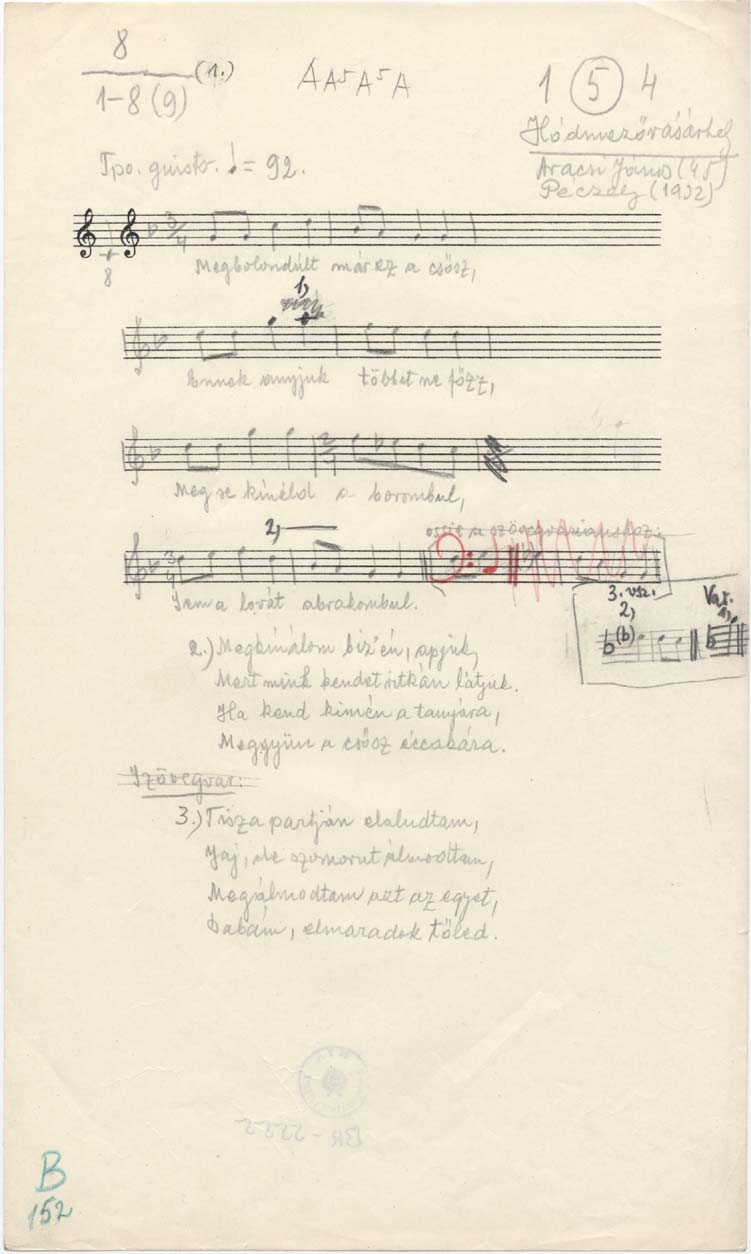 8
1-8 (9)
(1.)
A A⁵ A⁵ A
1 5 4
Hódmezővásárhely
Aracsi János (45)
Péczely (1932)
Tpo. giusto. ♩= 92.
3/4
8
Megbolondúlt már ez a csősz,
1,
Ennek anyjuk többet ne főzz,
2/4
Meg se kínéld a borombul,
2,
ossia a szövegvariánshoz:
3/4
Sem a lovát abrakombul.
3. vsz.
2,
(b)
Var.
1,
2.) Megkínálom biz'én, apjuk,
Mert mink kendet ritkán látjuk.
Ha kend kimén a tanyára,
Meggyün a csősz éccakára.
Szövegvar:
3.) Tisza partján elaludtam,
Jaj, de szomorut álmodtam,
Megálmodtam azt az egyet,
Babám, elmaradok tőled.
BR-2222
B
152